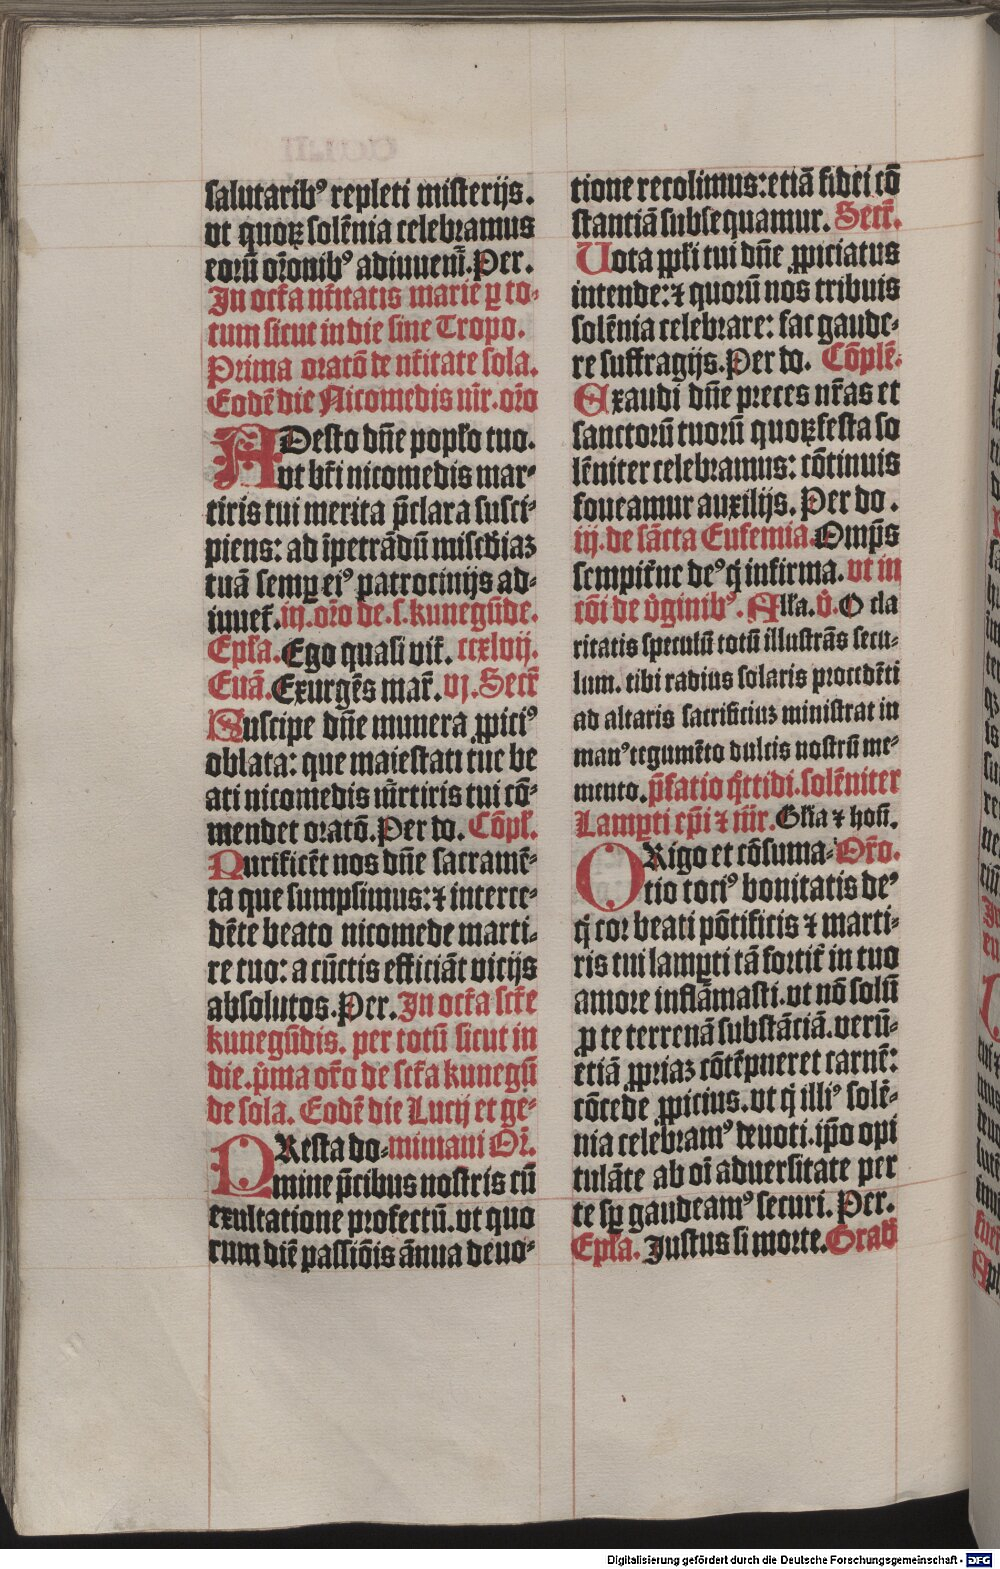 salutaribꝰ repleti misterijs.
vt quoꝝ solēnia celebramus
eorū oꝛonibꝰ adiuuem̄. Per.
In oct̄a nt̄itatis marie ꝑ to-
tum sicut in die sine Tropo.
Prima oratō de nt̄itate sola.
Eodē die Nicomedis m̄r. or̄o
ADesto dn̄e popl̄o tuo.
vt bt̄i nicomedis mar-
tiris tui merita p̄clara susci-
piens: ad īpetrādū misc̄diaꝫ
tuā semꝑ eiꝰ patrocinijs ad-
iuuet̄. iij. or̄o de .s. kunegūde.
Epl̄a. Ego quasi vit̄. ccxlvij.
Euā. Exurgēs mar̄. vj. Secr̄
Suscipe dn̄e munera ꝓpiciꝰ
oblata: que maiestati tue be
ati nicomedis m̄rtiris tui cō-
mendet oratō. Per do. Cōpl̄.
Purificēt nos dn̄e sacramē-
ta que sumpsimus: ⁊ interce-
dēte beato nicomede marti-
re tuo: a cūctis efficiāt vicijs
absolutos. Per. In oct̄a sct̄e
kunegūdis. per totū sicut in
die. p̄ma or̄o de sct̄a kunegū
de sola. Eodē die Lucij et ge-
PResta do- miniani Or̄.
mine p̄cibus nostris cū
exultatione profectū. vt quo
rum diē passiōis ānua deuo-
tione recolimus: etiā fidei cō
stantiā subsequamur. Secr̄.
Uota ppl̄i tui dn̄e ꝓpiciatus
intende: ⁊ quorū nos tribuis
solēnia celebrare: fac gaude-
re suffragijs. Per do. Cōplē.
Exaudi dn̄e preces nr̄as et
sanctorū tuorū quoꝝ festa so
lēniter celebramus: cōtinuis
foueamur auxilijs. Per do.
iij. de sācta Eufemia. Omp̄s
sempit̄ne deꝰ q̇ infirma. vt in
cōi de v̄ginibꝰ. All̄a. v̄. O cla
ritatis speculū totū illustrās secu-
lum. tibi radius solaris procedēti
ad altaris sacrificiuꝫ ministrat in
manꝰ tegumēto dulcis nostrū me-
mento. p̄fatio q̄ttidi. solēniter
Lamp̄ti ep̄i ⁊ m̄r. Gl̄ia ⁊ hon̄.
ORigo et cōsuma- Or̄o.
tio tociꝰ bonitatis deꝰ
q̇ cor beati pōtificis ⁊ marti-
ris tui lamꝑti tā fortit̄ in tuo
amore inflāmasti. vt nō solū
ꝓ te terrenā substāciā. verū-
etiā ꝓpriaꝫ cōtēpneret carnē:
cōcede ꝓpicius. vt q̇ illiꝰ solē-
nia celebramꝰ deuoti. ip̄o opi
tulāte ab oī aduersitate per
te sꝑ gaudeamꝰ securi. Per.
Epl̄a. Justus si morte. Grad̄
Digitalisierung gefördert durch die Deutsche Forschungsgemeinschaft - DFG